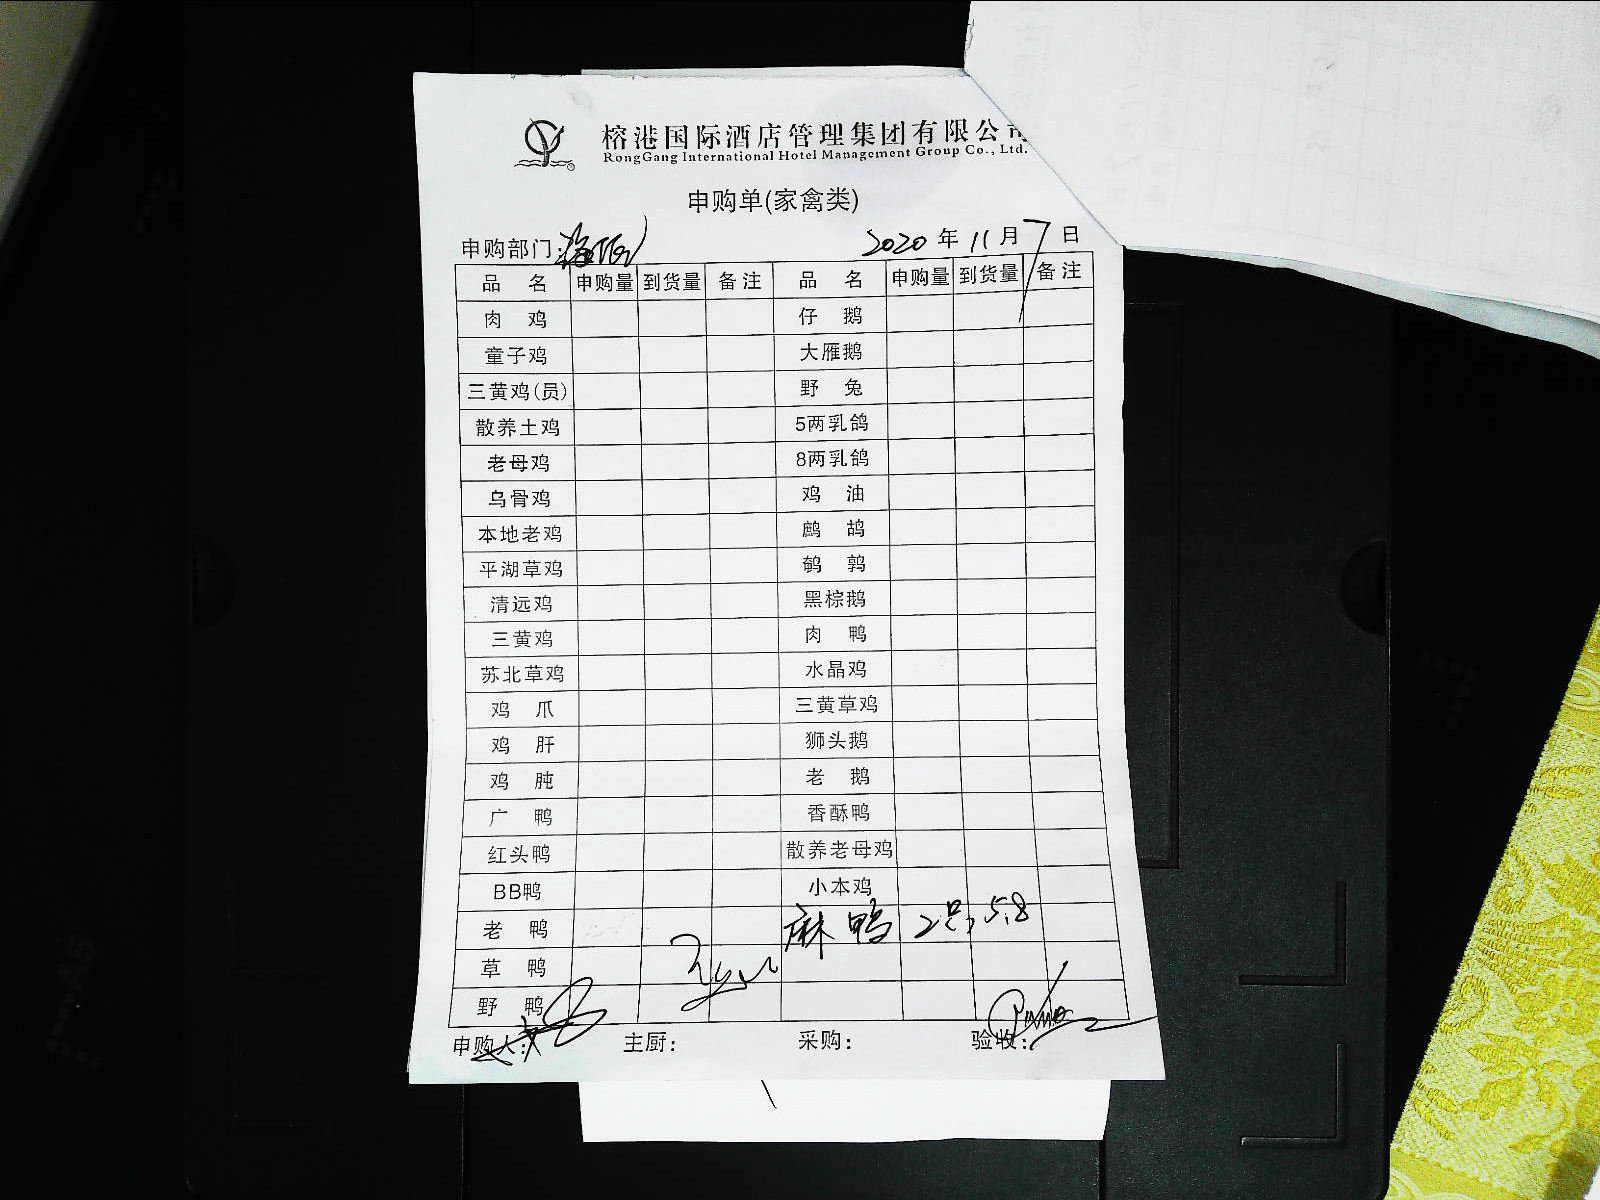 榕港国际酒店管理集团有限公司
RongGang International Hotel Management Group Co., Ltd.
申购单(家禽类)
申购部门: 2020年11月7日
品名 申购量 到货量 备注 品名 申购量 到货量 备注
肉鸡 仔鹅
童子鸡 大雁鹅
三黄鸡(员) 野兔
散养土鸡 5两乳鸽
老母鸡 8两乳鸽
乌骨鸡 鸡油
本地老鸡 鹧鸪
平湖草鸡 鹌鹑
清远鸡 黑棕鹅
三黄鸡 肉鸭
苏北草鸡 水晶鸡
鸡爪 三黄草鸡
鸡肝 狮头鹅
鸡肫 老鹅
广鸭 香酥鸭
红头鸭 散养老母鸡
BB鸭 小本鸡
老鸭 麻鸭 2只 5.8
草鸭
野鸭
申购人: 主厨: 采购: 验收: